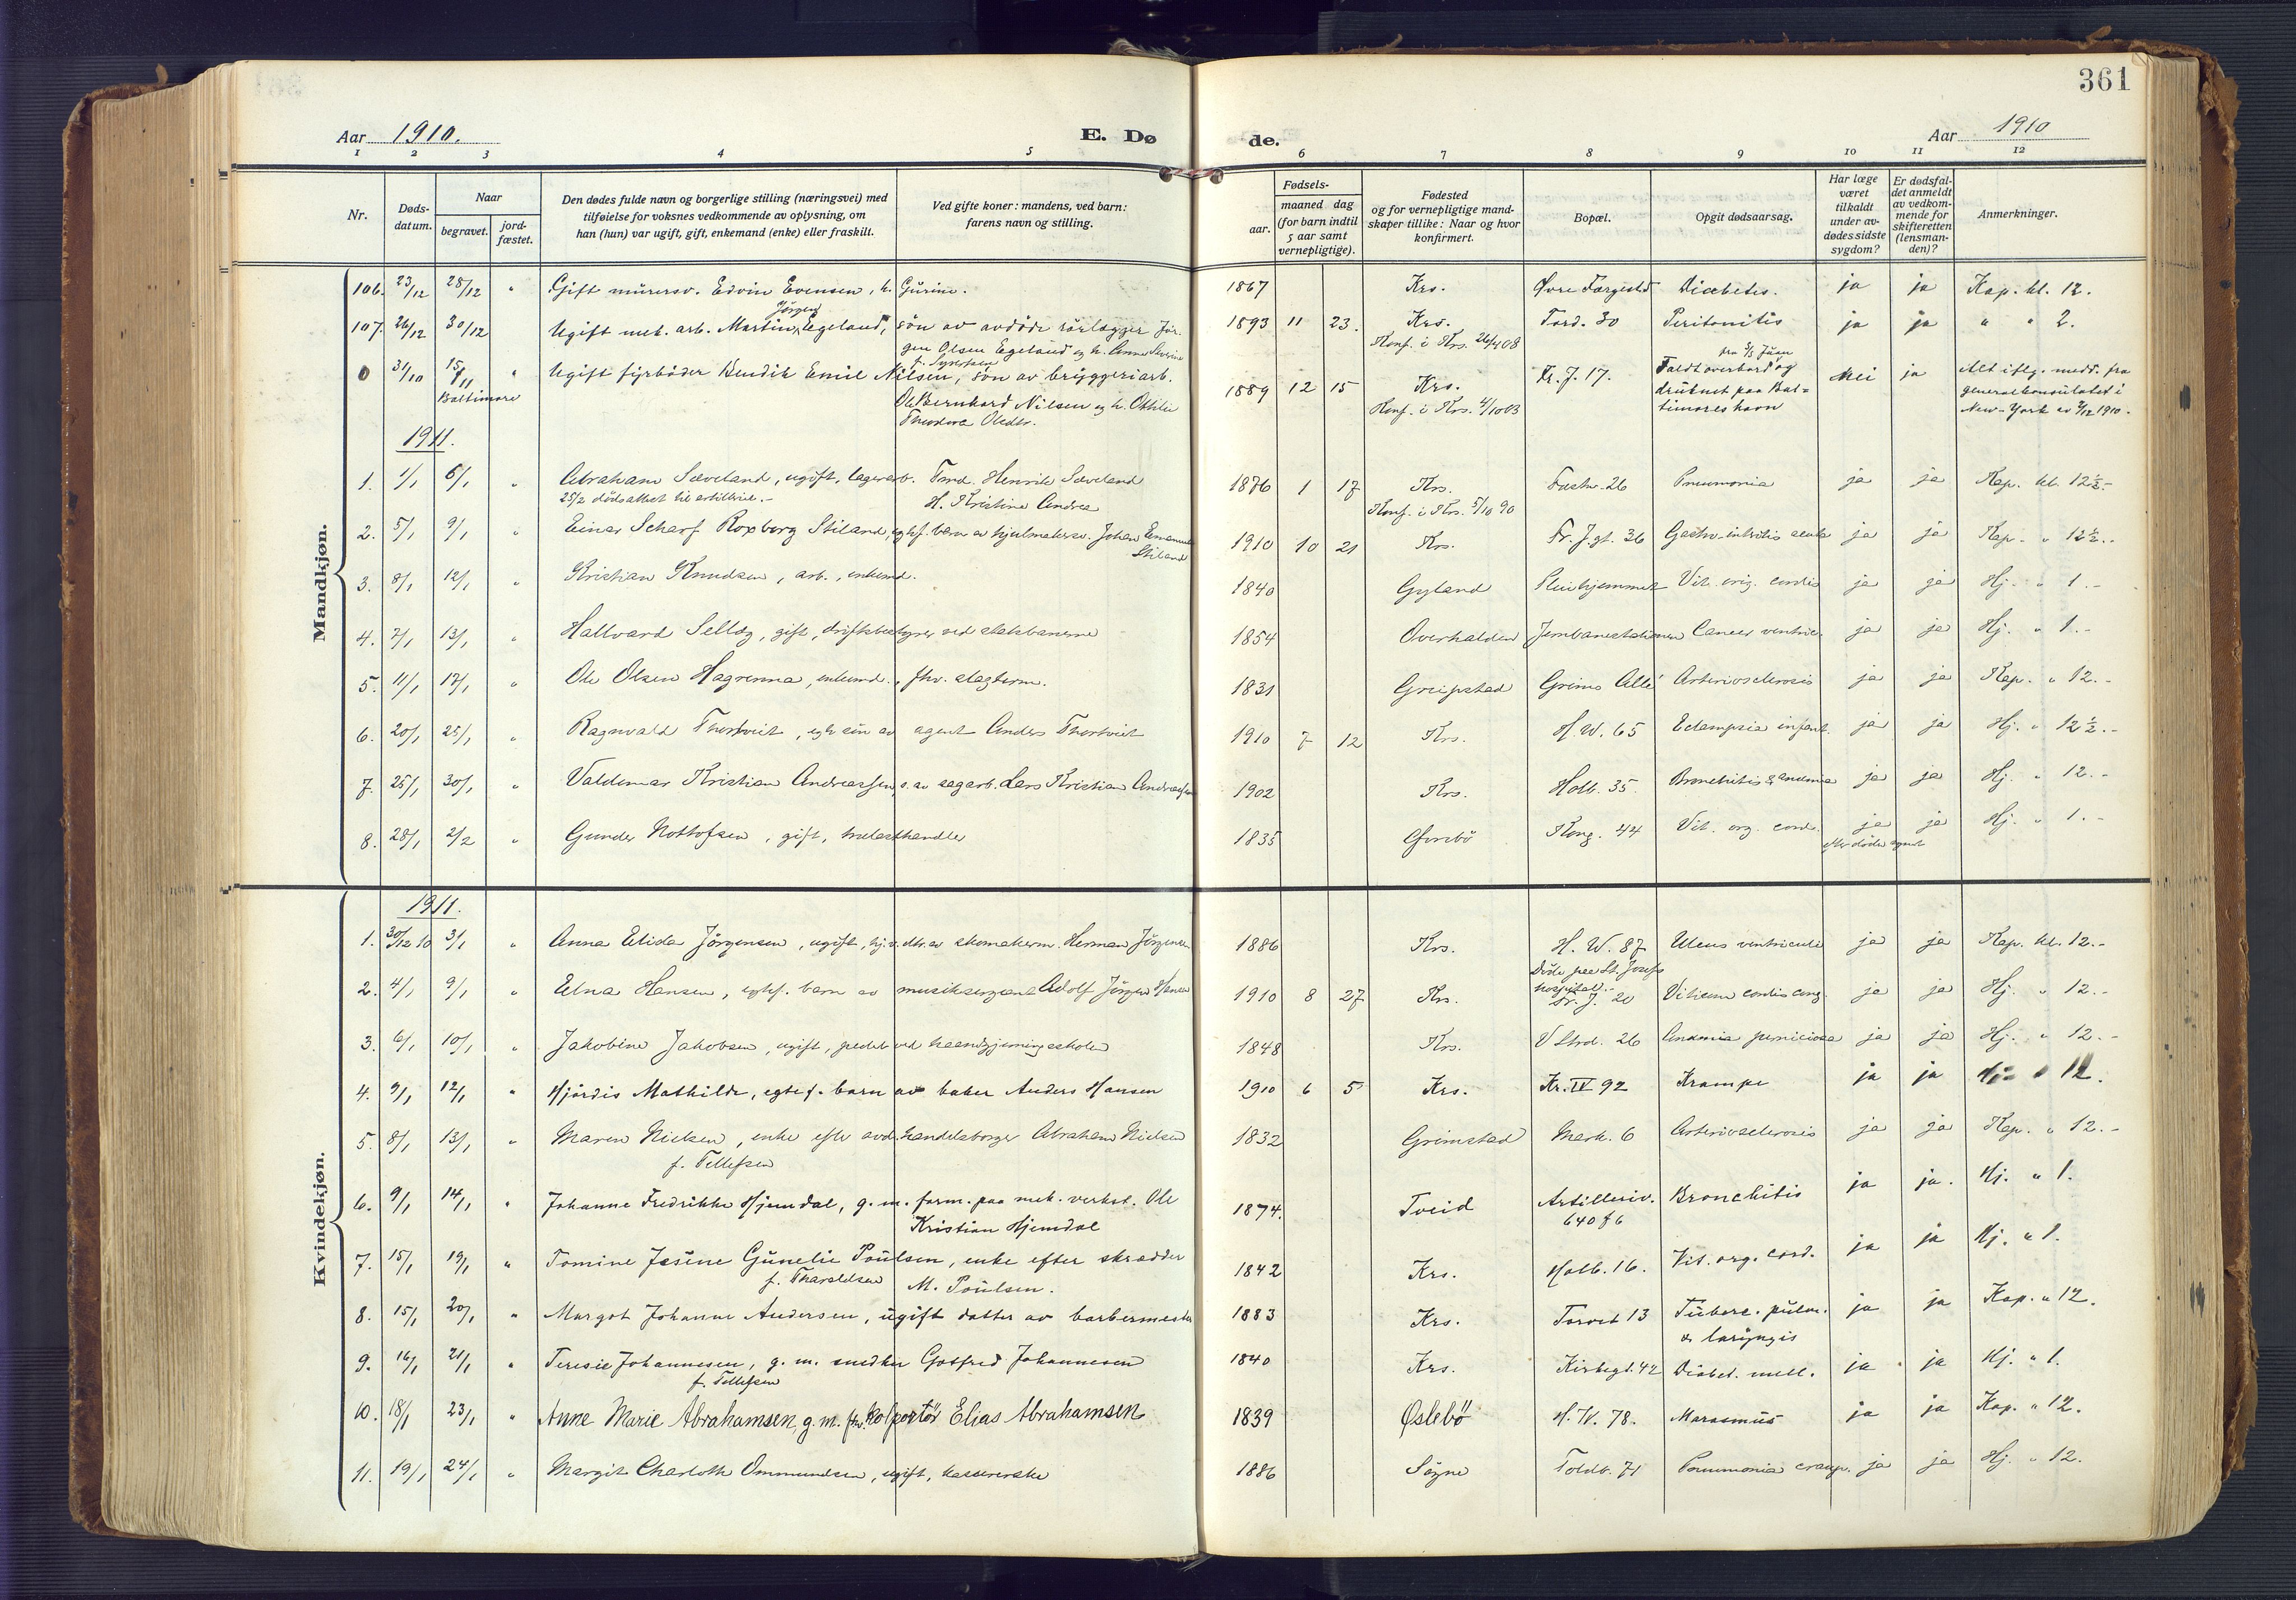 361
Aar 1910. E. Dø de. Aar 1910
1 2 3 4 5 6 7 8 9 10 11 12
Nr. Døds-datum. Naar begravet. jord-fæstet. Den dødes fulde navn og borgerlige stilling (næringsvei) med tilføielse for voksnes vedkommende av oplysning, om han (hun) var ugift, gift, enkemand (enke) eller fraskilt. Ved gifte koner: mandens, ved barn: farens navn og stilling. Fødsels- aar. maaned dag (for barn indtil 5 aar samt vernepligtige). Fødested og for vernepligtige mandskaper tillike: Naar og hvor konfirmert. Bopæl. Opgit dødsaarsag. Har læge været tilkaldt under avdødes sidste sygdom? Er dødsfaldet anmeldt av vedkommende for skifteretten (lensmanden)? Anmerkninger.
Mandkjøn.
106. 23/12 28/12 " Gift mürersv. Edvin Evensen, h. Gürine. 1867 Krs. Øvre Færgested Diabetes. ja ja Kap. kl. 12.
107. 26/12 30/12 Ugift mek. arb. Martin Jörgen Egeland, sön av avdöde rörlægger Jör- 1893 11 23. Krs. Tord. 30 Peritonitis ja ja " " 2.
gen Olsen Egeland og h. Konf. i Krs. 26/4 08
0 31/10 15/11 " Ugift fyrböder Bendik Emil Nilsen, sön av bryggeriarb. 1889 12 15 Krs. Fr. J. 17. Faldt overbord og Nei ja Alt iflg. medd. fra
Baltimore Ole Bernhard Nilsen og h. Othilie Konf. i Krs. 4/10 03 druknet paa Bal- generalkonsulatet i
Theodora Olsdtr. timores havn New-York av 2/12 1910.
1911.
1. 1/1 6/1 " Abraham Sæveland, ugift, lagerarb. Fmd. Henrik Sæveland 1876 1 17 Krs. Fæstn. 26 Pneumonia ja ja Kap. kl. 12½.-
25/2 dødsattest til artilleriet.- H. Kristine Andrea Konf. i Krs. 5/10 90
2. 5/1 9/1 " Einar Scharf Roxborg Stiland, egtef. barn av hjulmakersv. Johan Emanuel Stiland 1910 10 21 Krs. Fr. J. gt. 36 Gastro-intritis acuta ja ja Kap. " 12½.-
3. 8/1 12/1 " Kristian Knudsen, arb., enkemd. 1840 Gyland Pleiehjemmet Vit. org. cordis ja ja Hj. " 1.-
4. 7/1 13/1 " Hallvard Sellæg, gift, driftsbestyrer ved statsbanerne 1854 Overhalden Jernbanestationen Cancer ventric. ja ja Hj. " 1.-
5. 11/1 17/1 " Ole Olsen Hagrenna, enkemd., fhv. slagterm. 1831 Greipstad Grims Allé Arteriosclerosis ja ja Kap. " 12.-
6. 20/1 25/1 " Ragnvald Thortveit, egte sön av agent Anders Thortveit 1910 7 12 Krs. H. W. 65 Eclampsia infant. ja ja Hj. " 12½.-
7. 25/1 30/1 " Valdemar Kristian Andreassen, s. av sagarb. Lars Kristian Andreassen 1902 Krs. Holb. 35. Bronchitis & anæmia ja ja Hj. " 12.-
8. 28/1 2/2 " Gunder Nottofsen, gift, trælasthandler 1835 Øvrebö Kong. 44 Vit. org. cord. ja ja Hj. " 1.-
Kvindekjøn.
1911.
1. 30/12 10 3/1 " Anna Elida Jörgensen, ugift, hj.v. dtr. av skomakerm. Herman Jörgensen 1886 Krs. H. W. 87 Ulcus ventriculi ja ja Kap. kl. 12.-
Döde paa St. Josefs hospital.-
2. 4/1 9/1 " Edna Hansen, egtef. barn av musiksergeant Adolf Jörgen Hansen 1910 8 27 Krs. Fr. J. 20 Vitium cordis cong. ja ja Hj. " 12.-
3. 6/1 10/1 " Jakobine Jakobsen, ugift, pedel ved haandgjerningsskolen 1848 Krs. V Strd. 26 Anæmia perniciosa ja ja Hj. " 12.-
4. 9/1 12/1 " Hjördis Mathilde, egtef. barn av baker Anders Hansen 1910 6 5 Krs. Kr. IV 92 Krampe ja ja Hj. " 12.
5. 8/1 13/1 " Maren Nielsen, enke efter avd. handelsborger Abraham Nielsen 1832 Grimstad Mark. 6 Arteriosclerosis ja ja Kap. " 12.-
f. Tellefsen
6. 9/1 14/1 " Johanne Fredrikke Hjemdal, g. m. form. paa mek. verkst. Ole 1874. Tveid Artilleriv. Bronchitis ja ja. Hj. " 1.
Kristian Hjemdal 640 f 6
7. 15/1 19/1 " Tomine Jesine Gunelie Poülsen, enke efter skrædder 1842 Krs. Holb. 16. Vit. org. cord. ja ja Hj. " 1.
f. Tharaldsen M. Poülsen.
8. 15/1 20/1 " Margot Johanne Andersen, ugift datter av barbermester 1883 Krs. Torvet 13 Tüberc. pülm. ja ja Kap. " 12.
& laryngis
9. 16/1 21/1 " Teresie Johannesen, g. m. snedker Gotfred Johannesen 1840 Krs. Kirkegt. 42 Diabet. mell. ja ja Hj. " 1.
f. Tellefsen
10. 18/1 23/1 " Anne Marie Abrahamsen, g. m. fhv. kolportör Elias Abrahamsen 1839 Øslebö H. W. 78. Marasmüs ja ja Kap. " 12.
11. 19/1 24/1 " Margit Charlotte Ommundsen, ugift, kassererske 1886 Sögne Toldb. 71 Pneumonia croup. ja ja Hj. " 12.